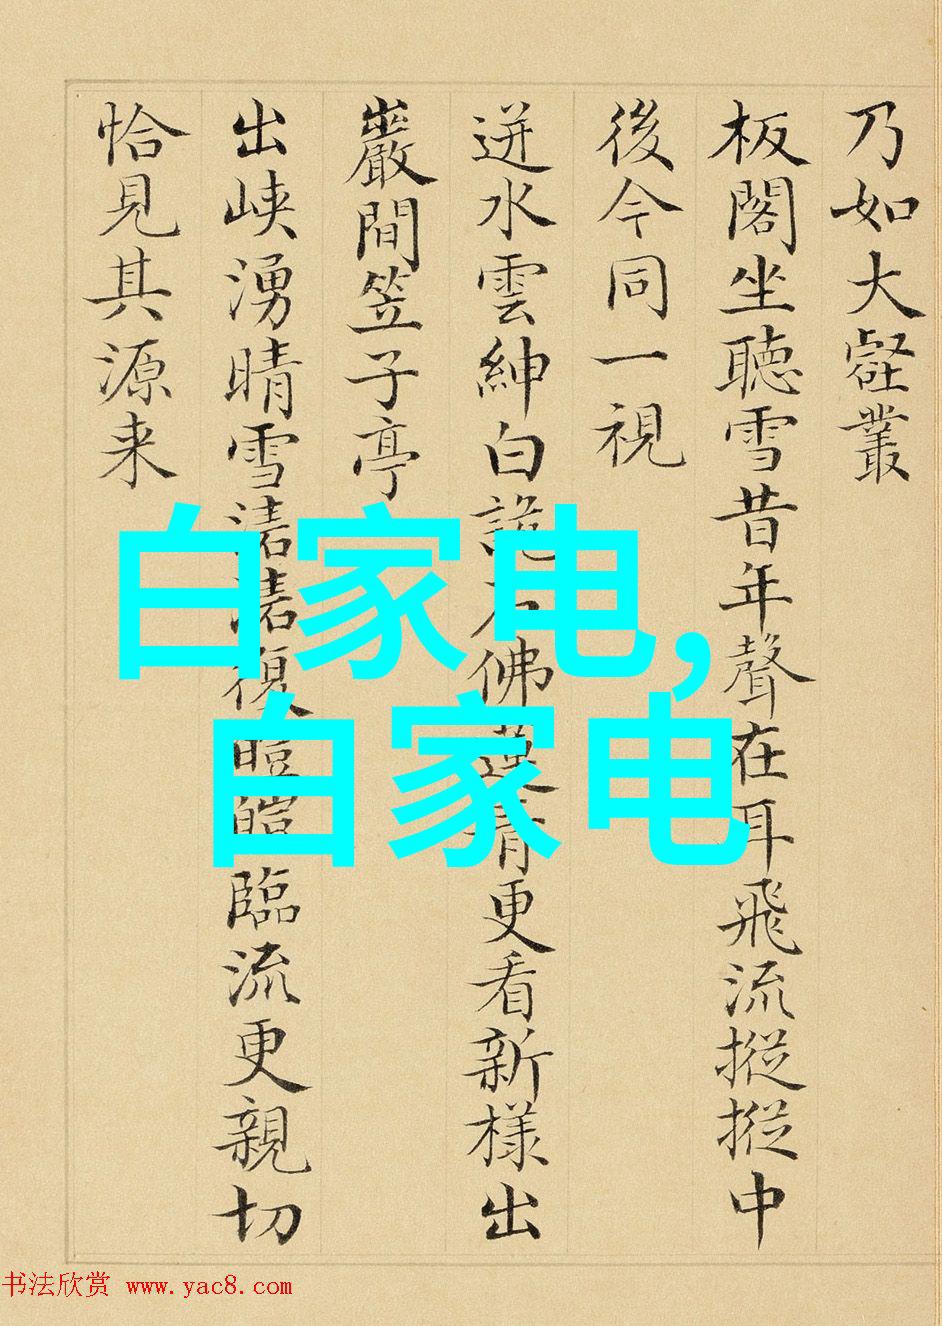 乃如大壑叢
板閣坐聽雪昔年聲在耳飛流摐摐中
後今同一視
迸水雲紳白詭石佛蓮青更看新樣出
巖間笠子亭
出峽湧晴雪濤濤復皚皚臨流更親切
恰見其源来
白家电,
白家电
书法欣赏 www.yac8.com